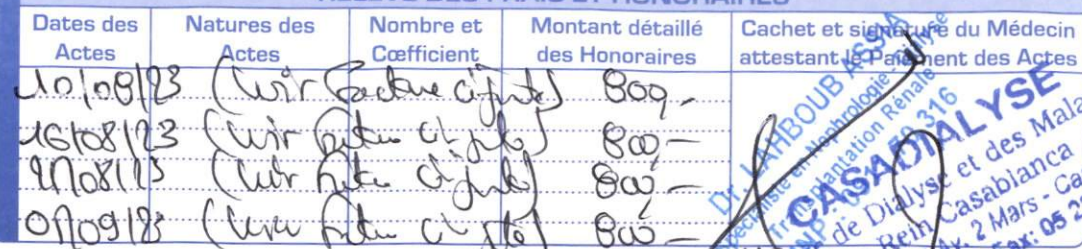 RELEVE DES FRAIS ET HONORAIRES
Dates des Actes
Natures des Actes
Nombre et Cœfficient
Montant détaillé des Honoraires
Cachet et signature du Médecin attestant le Paiement des Actes
10/08/23 (Voir facture ci-jointe) 800,-
16/08/23 (Voir facture ci-jointe) 800,-
(Voir facture ci-jointe) 800,-
01/09/23 (Voir facture ci-jointe) 800,-
Dr. LAHBOUB ASSIA
Spécialiste en Néphrologie - Dialyse
Transplantation Rénale
CASADIALYSE
de Dialyse et des Mala
Rein Casablanca
Av. 2 Mars - Ca